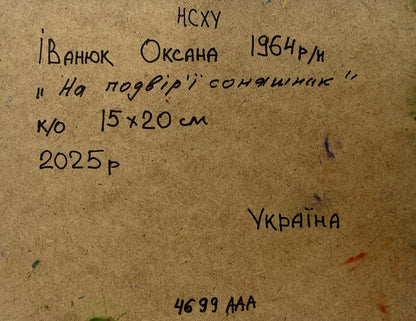 НСХУ
ІВанюк Оксана 1964р/н
„На подвір'ї соняшник"
к/о 15х20 см
2025р
Україна
4699 ААА